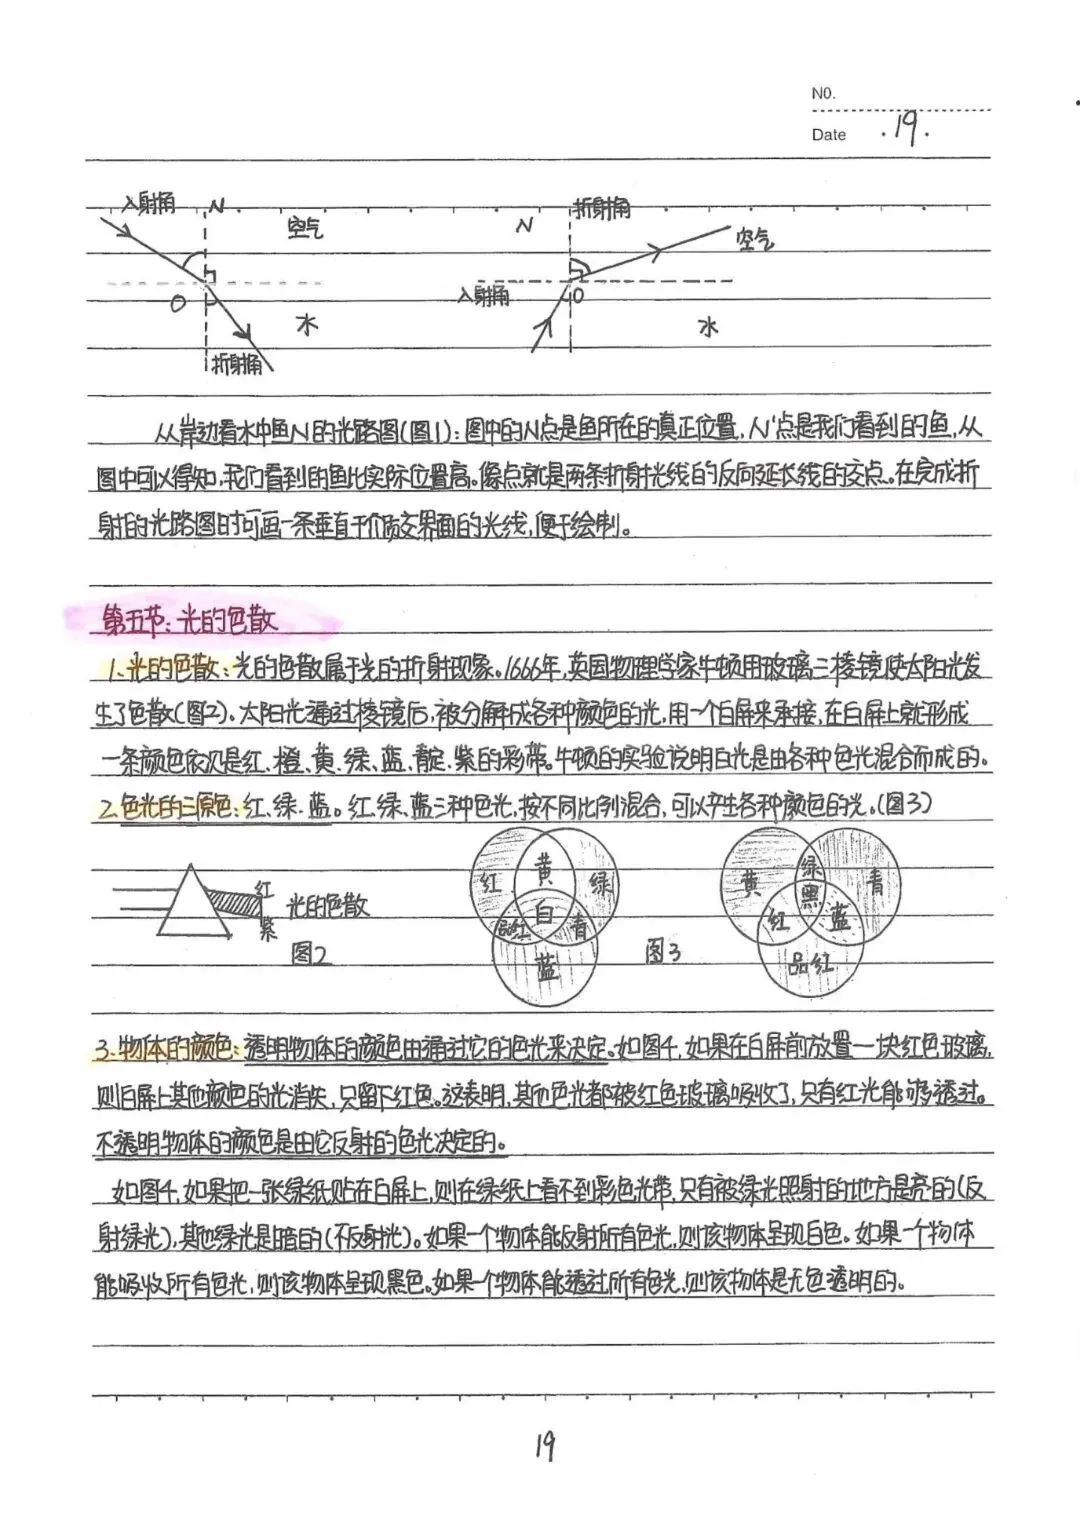 NO.
Date .19.
入射角 N 空气 N 折射角 空气
O 水 入射角 O 水
折射角
从岸边看水中鱼N的光路图(图1):图中的N点是鱼所在的真正位置,N'点是我们看到的鱼,从
图中可以得知,我们看到的鱼比实际位置高。像点就是两条折射光线的反向延长线的交点。在完成折
射的光路图时可画一条垂直于介质交界面的光线,便于绘制。
第五节:光的色散
1.光的色散:光的色散属于光的折射现象。1666年,英国物理学家牛顿用玻璃三棱镜使太阳光发
生了色散(图2)。太阳光通过棱镜后,被分解成各种颜色的光,用一个白屏来承接,在白屏上就形成
一条颜色依次是红、橙、黄、绿、蓝、靛、紫的彩带。牛顿的实验说明白光是由各种色光混合而成的。
2.色光的三原色:红、绿、蓝。红、绿、蓝三种色光,按不同比例混合,可以产生各种颜色的光。(图3)
红 光的色散 紫 图2
红 黄 绿 白 品红 青 蓝
图3
黄 绿 青 黑 红 蓝 品红
3.物体的颜色:透明物体的颜色由通过它的色光来决定。如图4,如果在白屏前放置一块红色玻璃,
则白屏上其他颜色的光消失,只留下红色。这表明,其他色光都被红色玻璃吸收了,只有红光能够透过。
不透明物体的颜色是由它反射的色光决定的。
如图4,如果把一张绿纸贴在白屏上,则在绿纸上看不到彩色光带,只有被绿光照射的地方是亮的(反
射绿光),其他绿光是暗的(不反射光)。如果一个物体能反射所有色光,则该物体呈现白色。如果一个物体
能吸收所有色光,则该物体呈现黑色。如果一个物体能透过所有色光,则该物体是无色透明的。
19